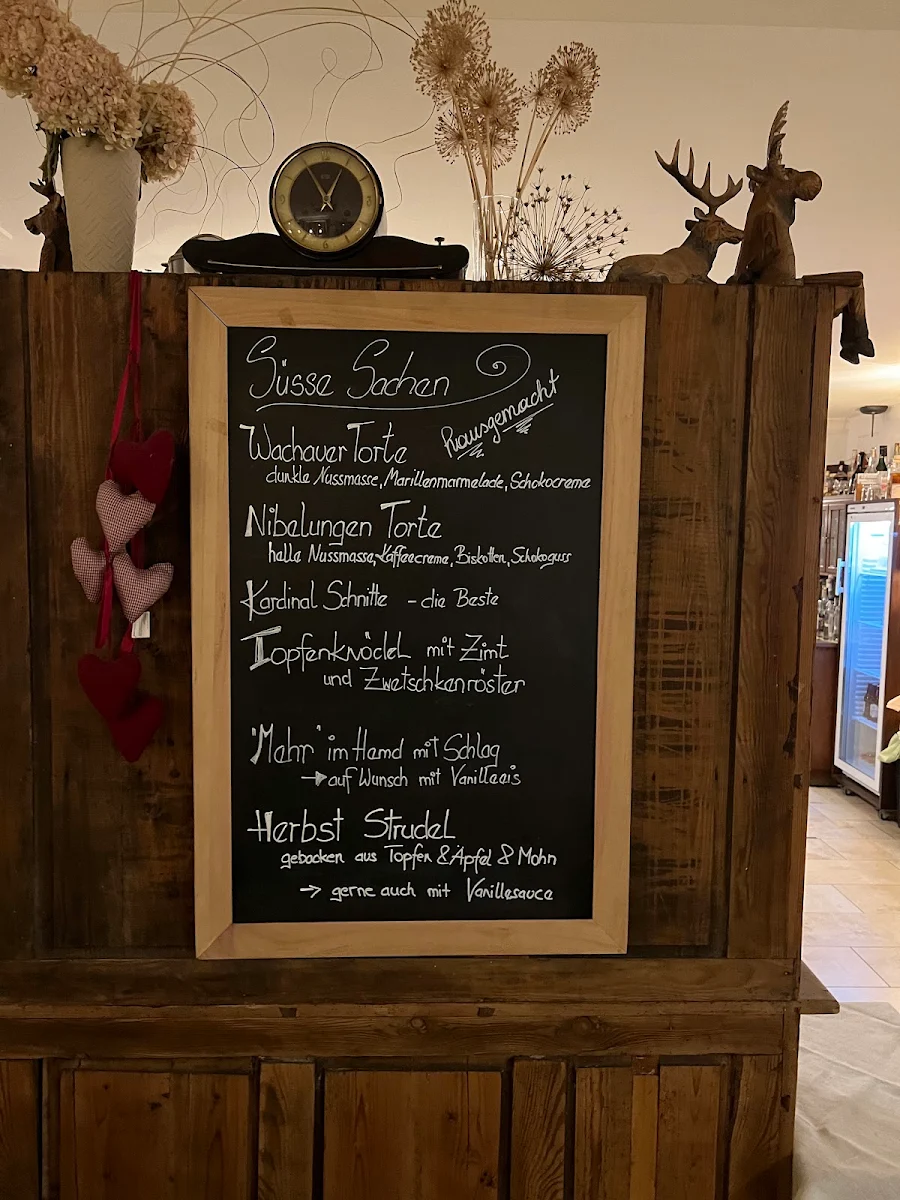 Süsse Sachen
Hausgemacht
Wachauer Torte
dunkle Nussmasse, Marillenmarmelade, Schokocreme
Nibelungen Torte
helle Nussmasse, Kaffeecreme, Biskotten, Schokoguss
Kardinal Schnitte - die Beste
Topfenknödel mit Zimt
und Zwetschkenröster
"Mohr" im Hemd mit Schlag
→ auf Wunsch mit Vanilleeis
Herbst Strudel
gebacken aus Topfen & Apfel & Mohn
→ gerne auch mit Vanillesauce